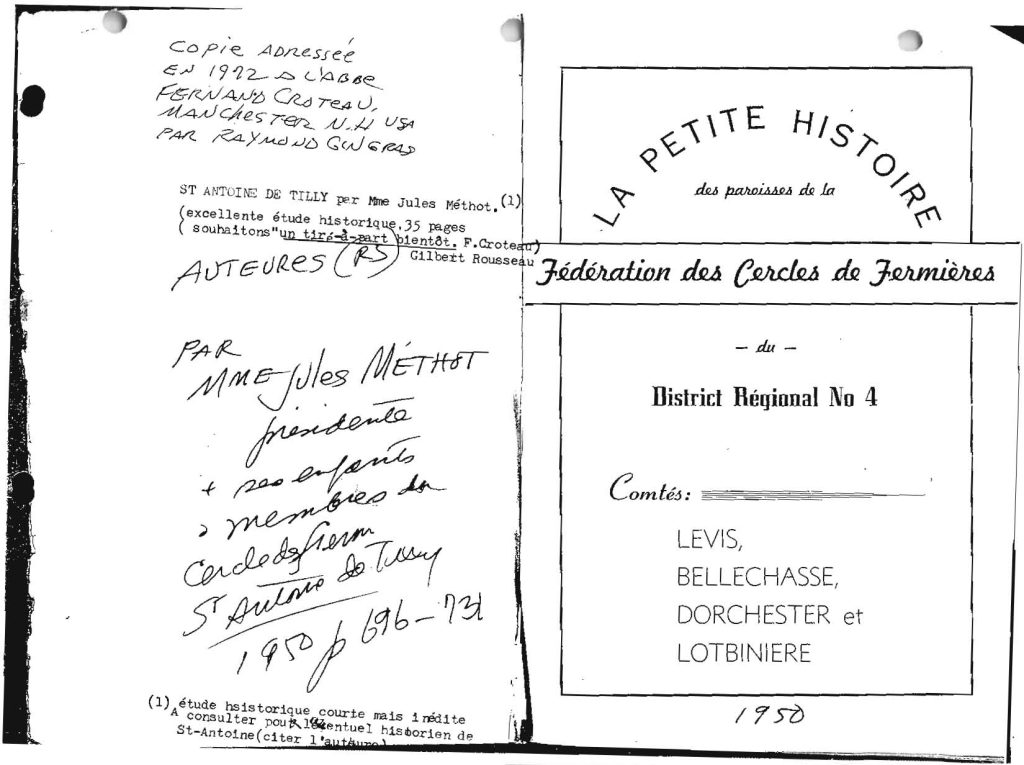 COPIE ADRESSÉE
EN 1972 A L'ABBE
FERNAND CROTEAU,
MANCHESTER N.H USA
PAR RAYMOND GINGRAS
ST ANTOINE DE TILLY per Mme Jules Méthot.(1)
(excellente étude historique,35 pages
( souhaitons"un tiré-à-part bientôt. F.Croteau)
Gilbert Rousseau
AUTEURES (RS)
PAR
MME Jules MÉTHOT
présidente
+ ses enfants
membres du
Cercle de Ferm
ST Antoine de Tilly
1950 p 696-731
(1) étude hsistorique courte mais inédite
A consulter pour l'éventuel historien de
St-Antoine(citer l'auteure)
LA PETITE HISTOIRE
des paroisses de la
Fédération des Cercles de Fermières
- du -
District Régional No 4
Comtés:
LEVIS,
BELLECHASSE,
DORCHESTER et
LOTBINIERE
1950